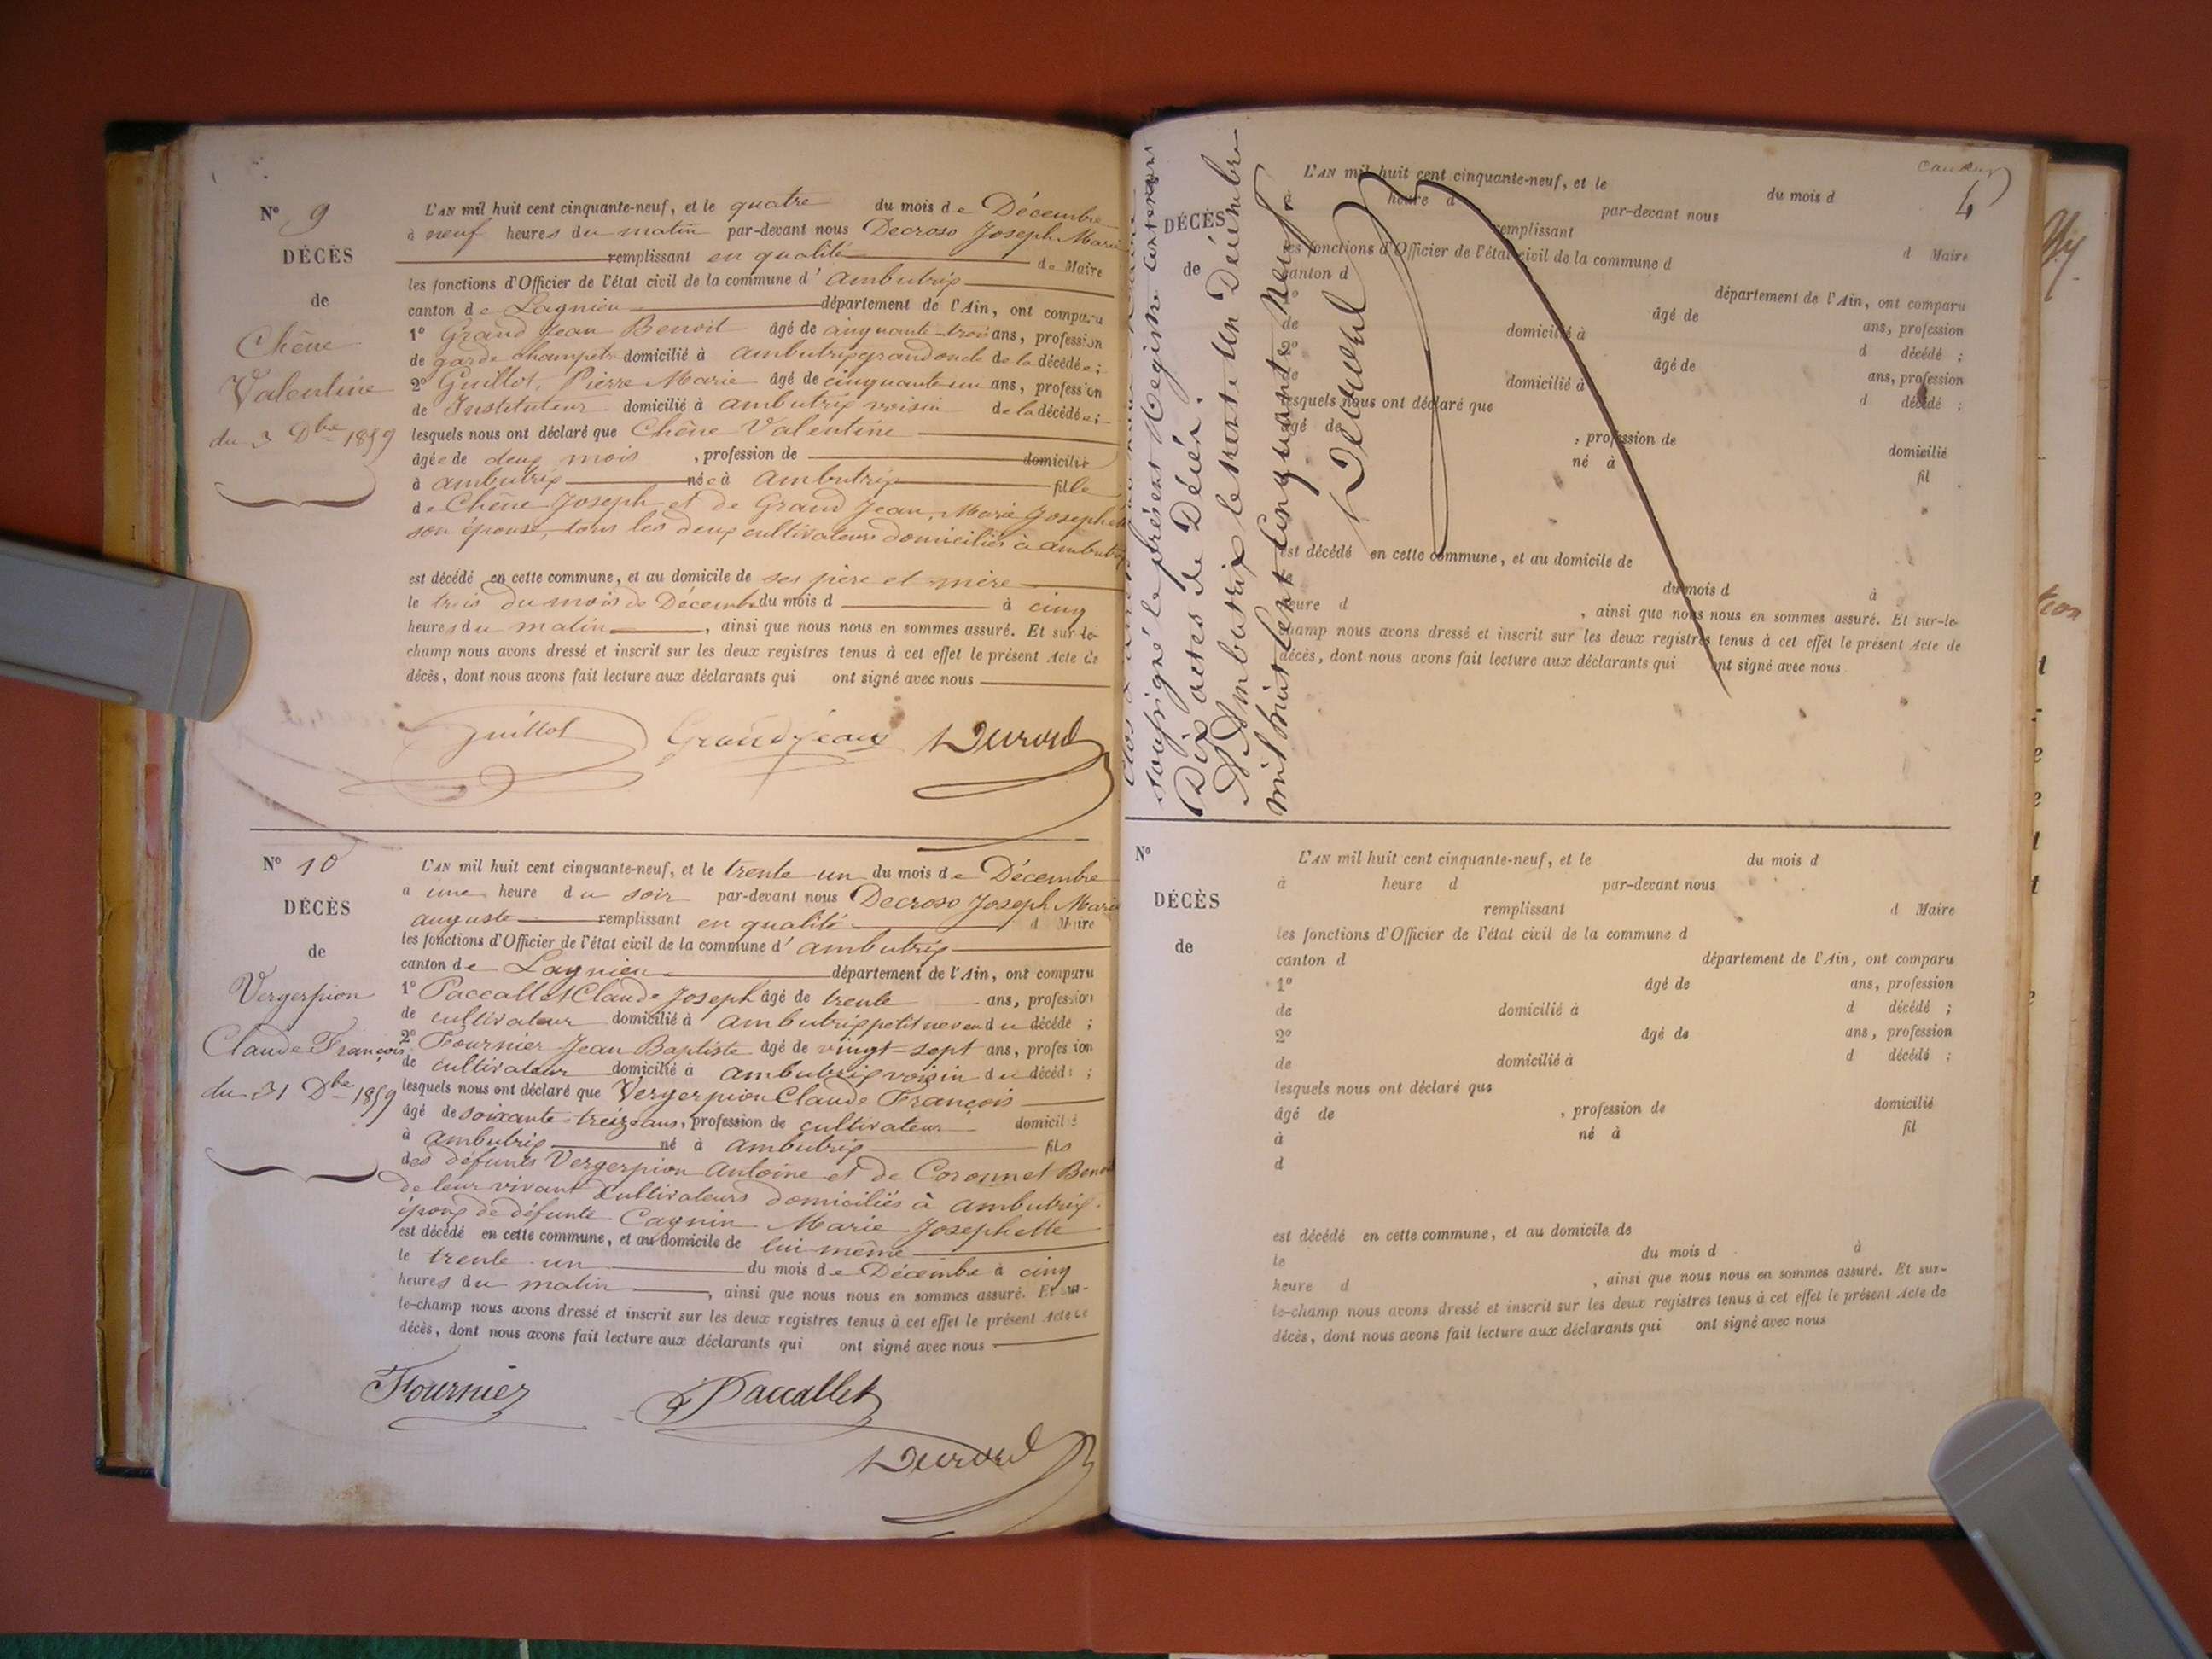 N° 9
DÉCÈS
de
Chêne
Valentine
du 3 Dbre 1859
L'AN mil huit cent cinquante-neuf, et le quatre du mois de Décembre
à neuf heures du matin par-devant nous Decroso Joseph Marie
remplissant en qualité de Maire
les fonctions d'Officier de l'état civil de la commune d'ambutrix
canton de Lagnieu département de l'Ain, ont comparu
1° Grand Jean Benoit âgé de cinquante-trois ans, profession
de garde champêt domicilié à ambutrix grand oncle de la décédée;
2° Guillot, Pierre Marie âgé de cinquante un ans, profession
de Instituteur domicilié à ambutrix voisin de la décédée;
lesquels nous ont déclaré que Chêne Valentine
âgée de deux mois, profession de domicilié
à ambutrix née à Ambutrix fille
de Chêne Joseph et de Grand Jean, Marie Joseph
son épouse, tous les deux cultivateurs domiciliés à ambutrix
est décédé en cette commune, et au domicile de ses père et mère
le trois du mois de Décembre du mois d à cinq
heures du matin, ainsi que nous nous en sommes assuré. Et sur-le-
champ nous avons dressé et inscrit sur les deux registres tenus à cet effet le présent Acte de
décès, dont nous avons fait lecture aux déclarants qui ont signé avec nous
Guillot Grandjean
N° 10
DÉCÈS
de
Vergerpion
Claude François
du 31 Dbre 1859
L'AN mil huit cent cinquante-neuf, et le trente un du mois de Décembre
à une heure du soir par-devant nous Decroso Joseph Marie
auguste remplissant en qualité d Maire
les fonctions d'Officier de l'état civil de la commune d'ambutrix
canton de Lagnieu département de l'Ain, ont comparu
1° Paccallet Claude Joseph âgé de trente ans, profession
de cultivateur domicilié à ambutrix petit neveu du décédé;
2° Fournier Jean Baptiste âgé de vingt-sept ans, profession
de cultivateur domicilié à ambutrix voisin du décédé;
lesquels nous ont déclaré que Vergerpion Claude François
âgé de soixante-treize ans, profession de cultivateur domicilié
à ambutrix né à ambutrix fils
des défunts Vergerpion Antoine et de Coronnet
de leur vivant cultivateurs domiciliés à ambutrix.
époux de défunte Cagnin Marie Josephette
est décédé en cette commune, et au domicile de lui même
le trente un du mois de Décembre à cinq
heures du matin, ainsi que nous nous en sommes assuré. Et sur-
le-champ nous avons dressé et inscrit sur les deux registres tenus à cet effet le présent Acte de
décès, dont nous avons fait lecture aux déclarants qui ont signé avec nous
Fournier Paccallet
soussigné le présent Registre contenant
Dix actes de Décès.
A Ambutrix le trente un Décembre
mil huit cent cinquante neuf.
4
DÉCÈS
de
L'AN mil huit cent cinquante-neuf, et le du mois d
à heure d par-devant nous
remplissant d Maire
les fonctions d'Officier de l'état civil de la commune d
canton d département de l'Ain, ont comparu
1° âgé de ans, profession
de domicilié à d décédé;
2° âgé de ans, profession
de domicilié à d décédé;
lesquels nous ont déclaré que
âgé de, profession de domicilié
né à fil
est décédé en cette commune, et au domicile de
du mois d à
heure d, ainsi que nous nous en sommes assuré. Et sur-le-
champ nous avons dressé et inscrit sur les deux registres tenus à cet effet le présent Acte de
décès, dont nous avons fait lecture aux déclarants qui ont signé avec nous
N°
DÉCÈS
de
L'AN mil huit cent cinquante-neuf, et le du mois d
à heure d par-devant nous
remplissant d Maire
les fonctions d'Officier de l'état civil de la commune d
canton d département de l'Ain, ont comparu
1° âgé de ans, profession
de domicilié à d décédé;
2° âgé de ans, profession
de domicilié à d décédé;
lesquels nous ont déclaré que
âgé de, profession de domicilié
à né à fil
d
est décédé en cette commune, et au domicile de
le du mois d à
heure d, ainsi que nous nous en sommes assuré. Et sur-
le-champ nous avons dressé et inscrit sur les deux registres tenus à cet effet le présent Acte de
décès, dont nous avons fait lecture aux déclarants qui ont signé avec nous